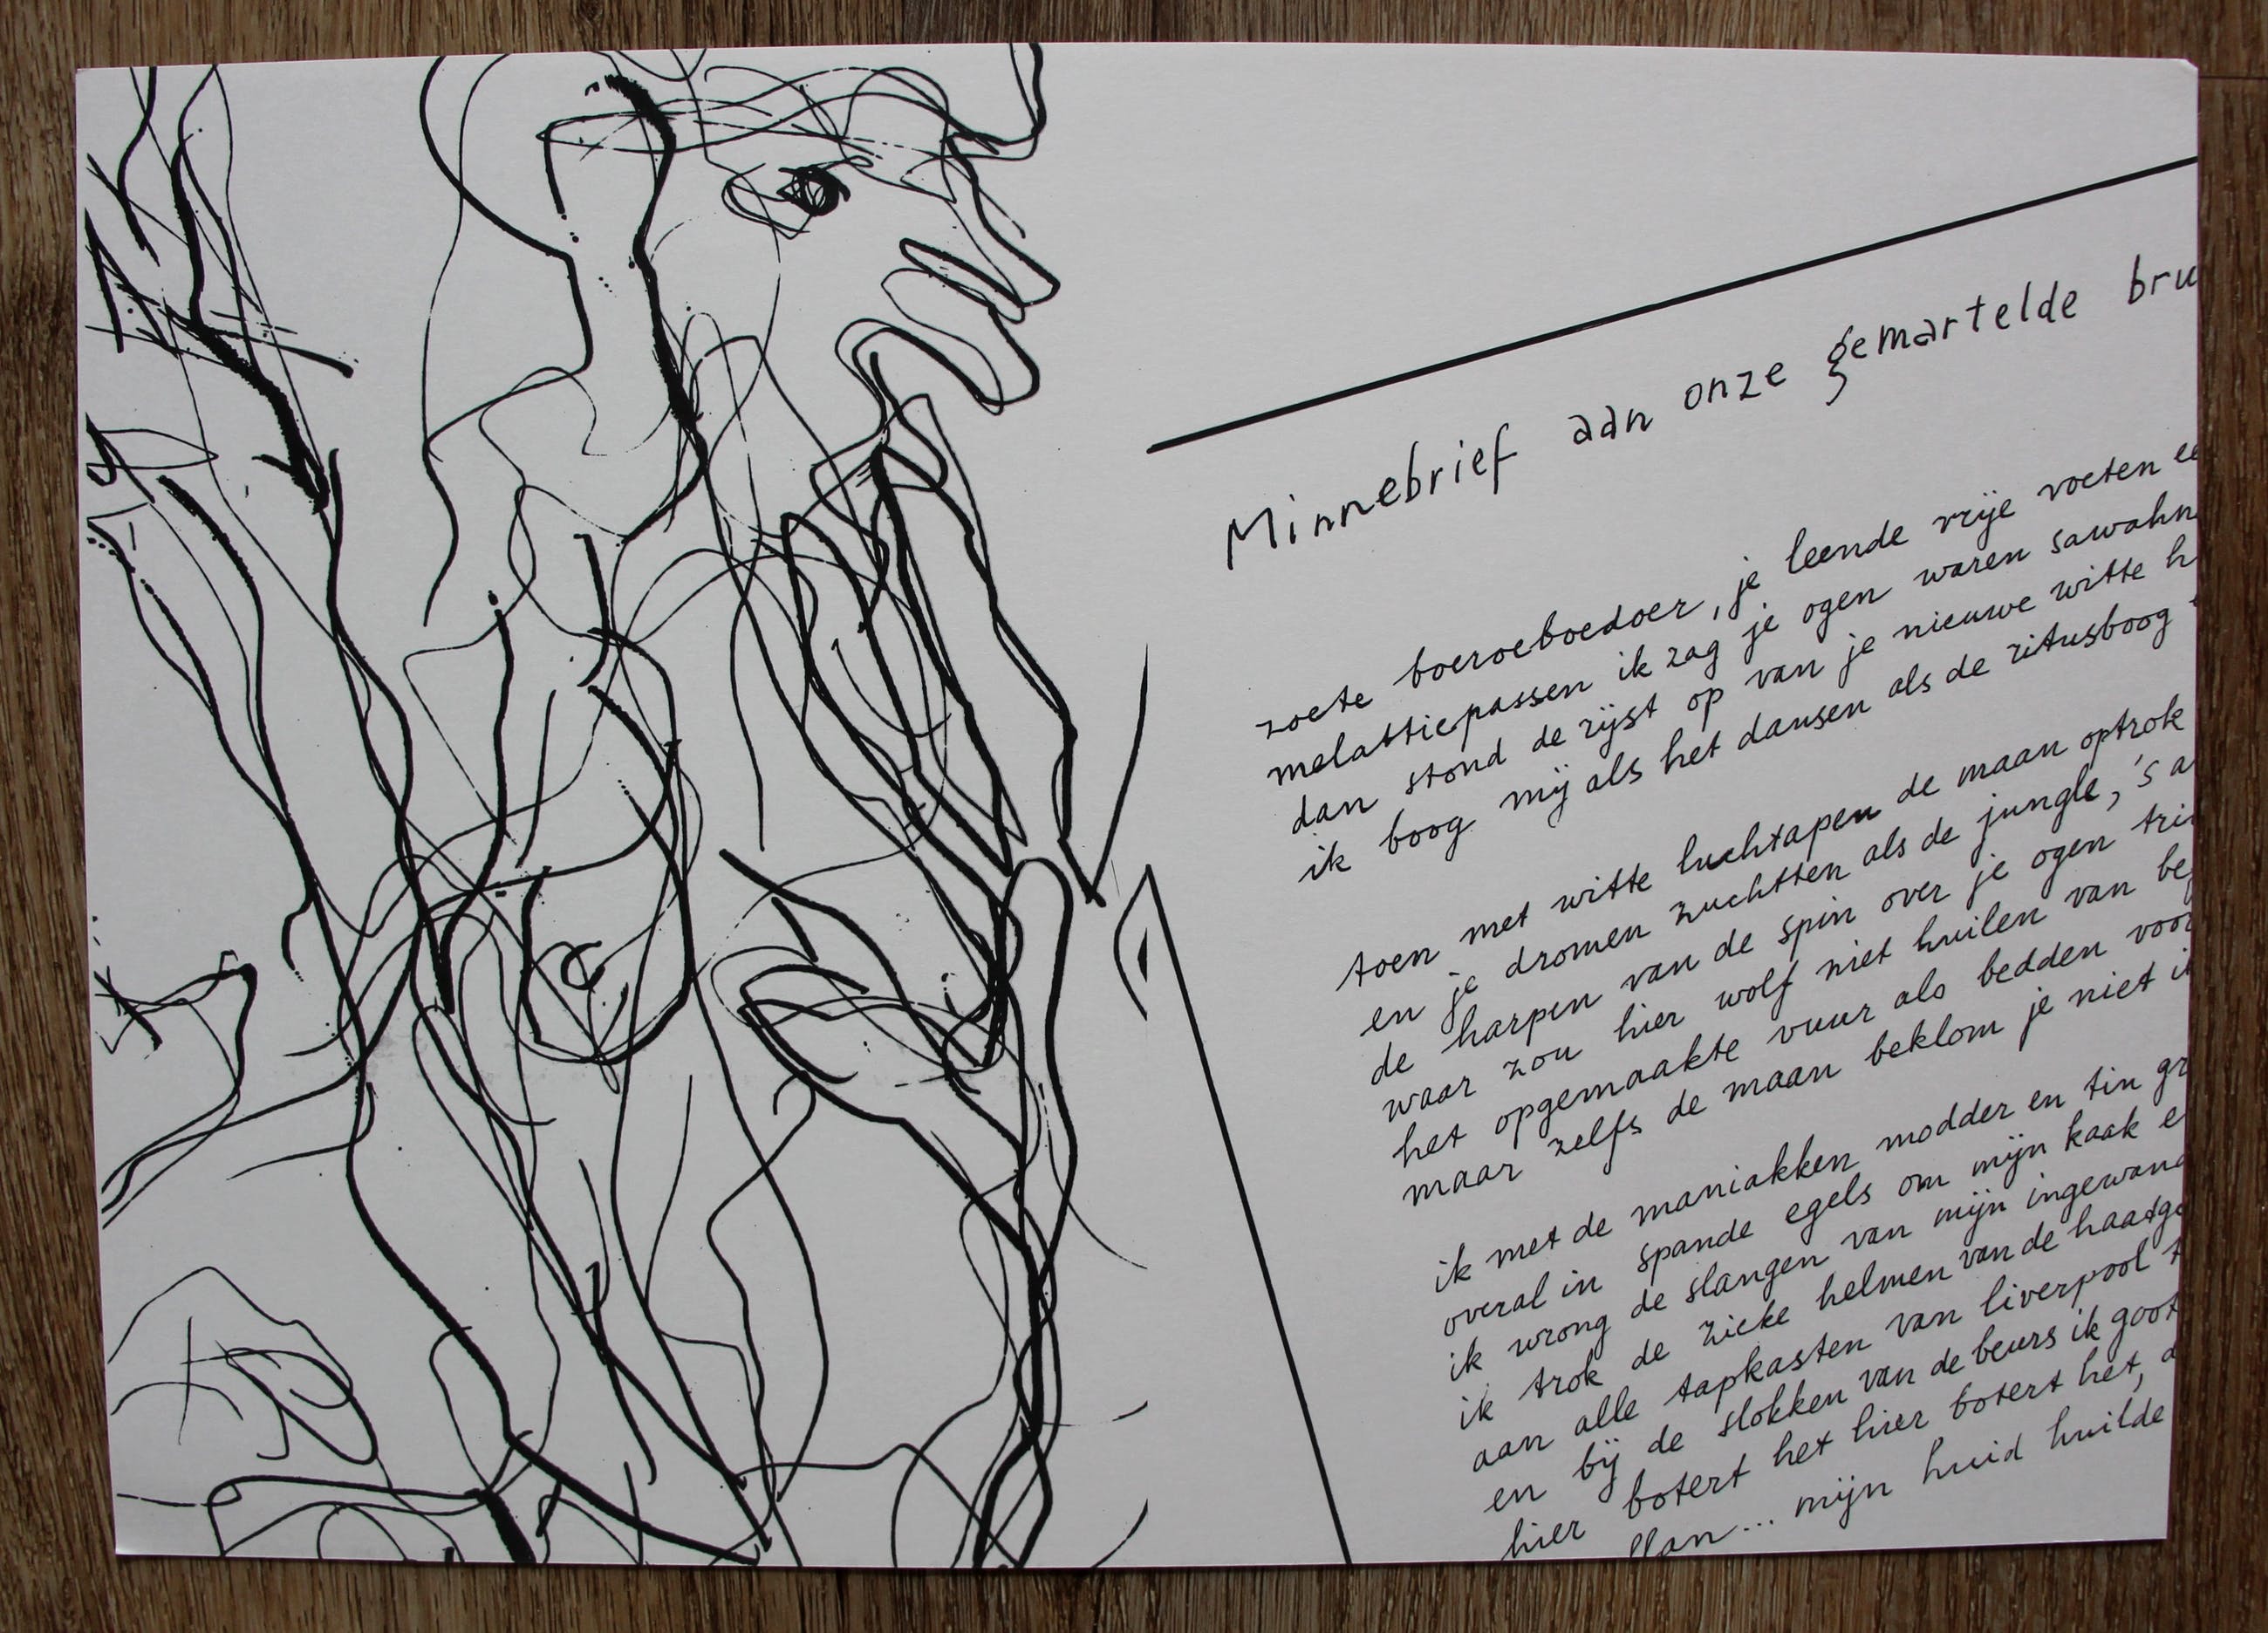 Minnebrief aan onze gemartelde bru
zoete boeroeboedoer, je leende vrije voeten ee
melattiepassen ik zag je ogen waren sawahn
dan stond de rijst op van je nieuwe witte h
ik boog mij als het dansen als de ritusboog
toen met witte luchtapen de maan optrok
en je dromen zuchtten als de jungle, 's a
de harpen van de spin over je ogen tri
waar zou hier wolf niet huilen van be
het opgemaakte vuur als bedden voor
maar zelfs de maan beklom je niet i
ik met de maniakken modder en tin gr
overal in spande egels om mijn kaak e
ik wrong de slangen van mijn ingewand
ik trok de zieke helmen van de haatge
aan alle tapkasten van liverpool t
en bij de slokken van de beurs ik goot
hier botert het hier botert het, a
llan... mijn huid huilde